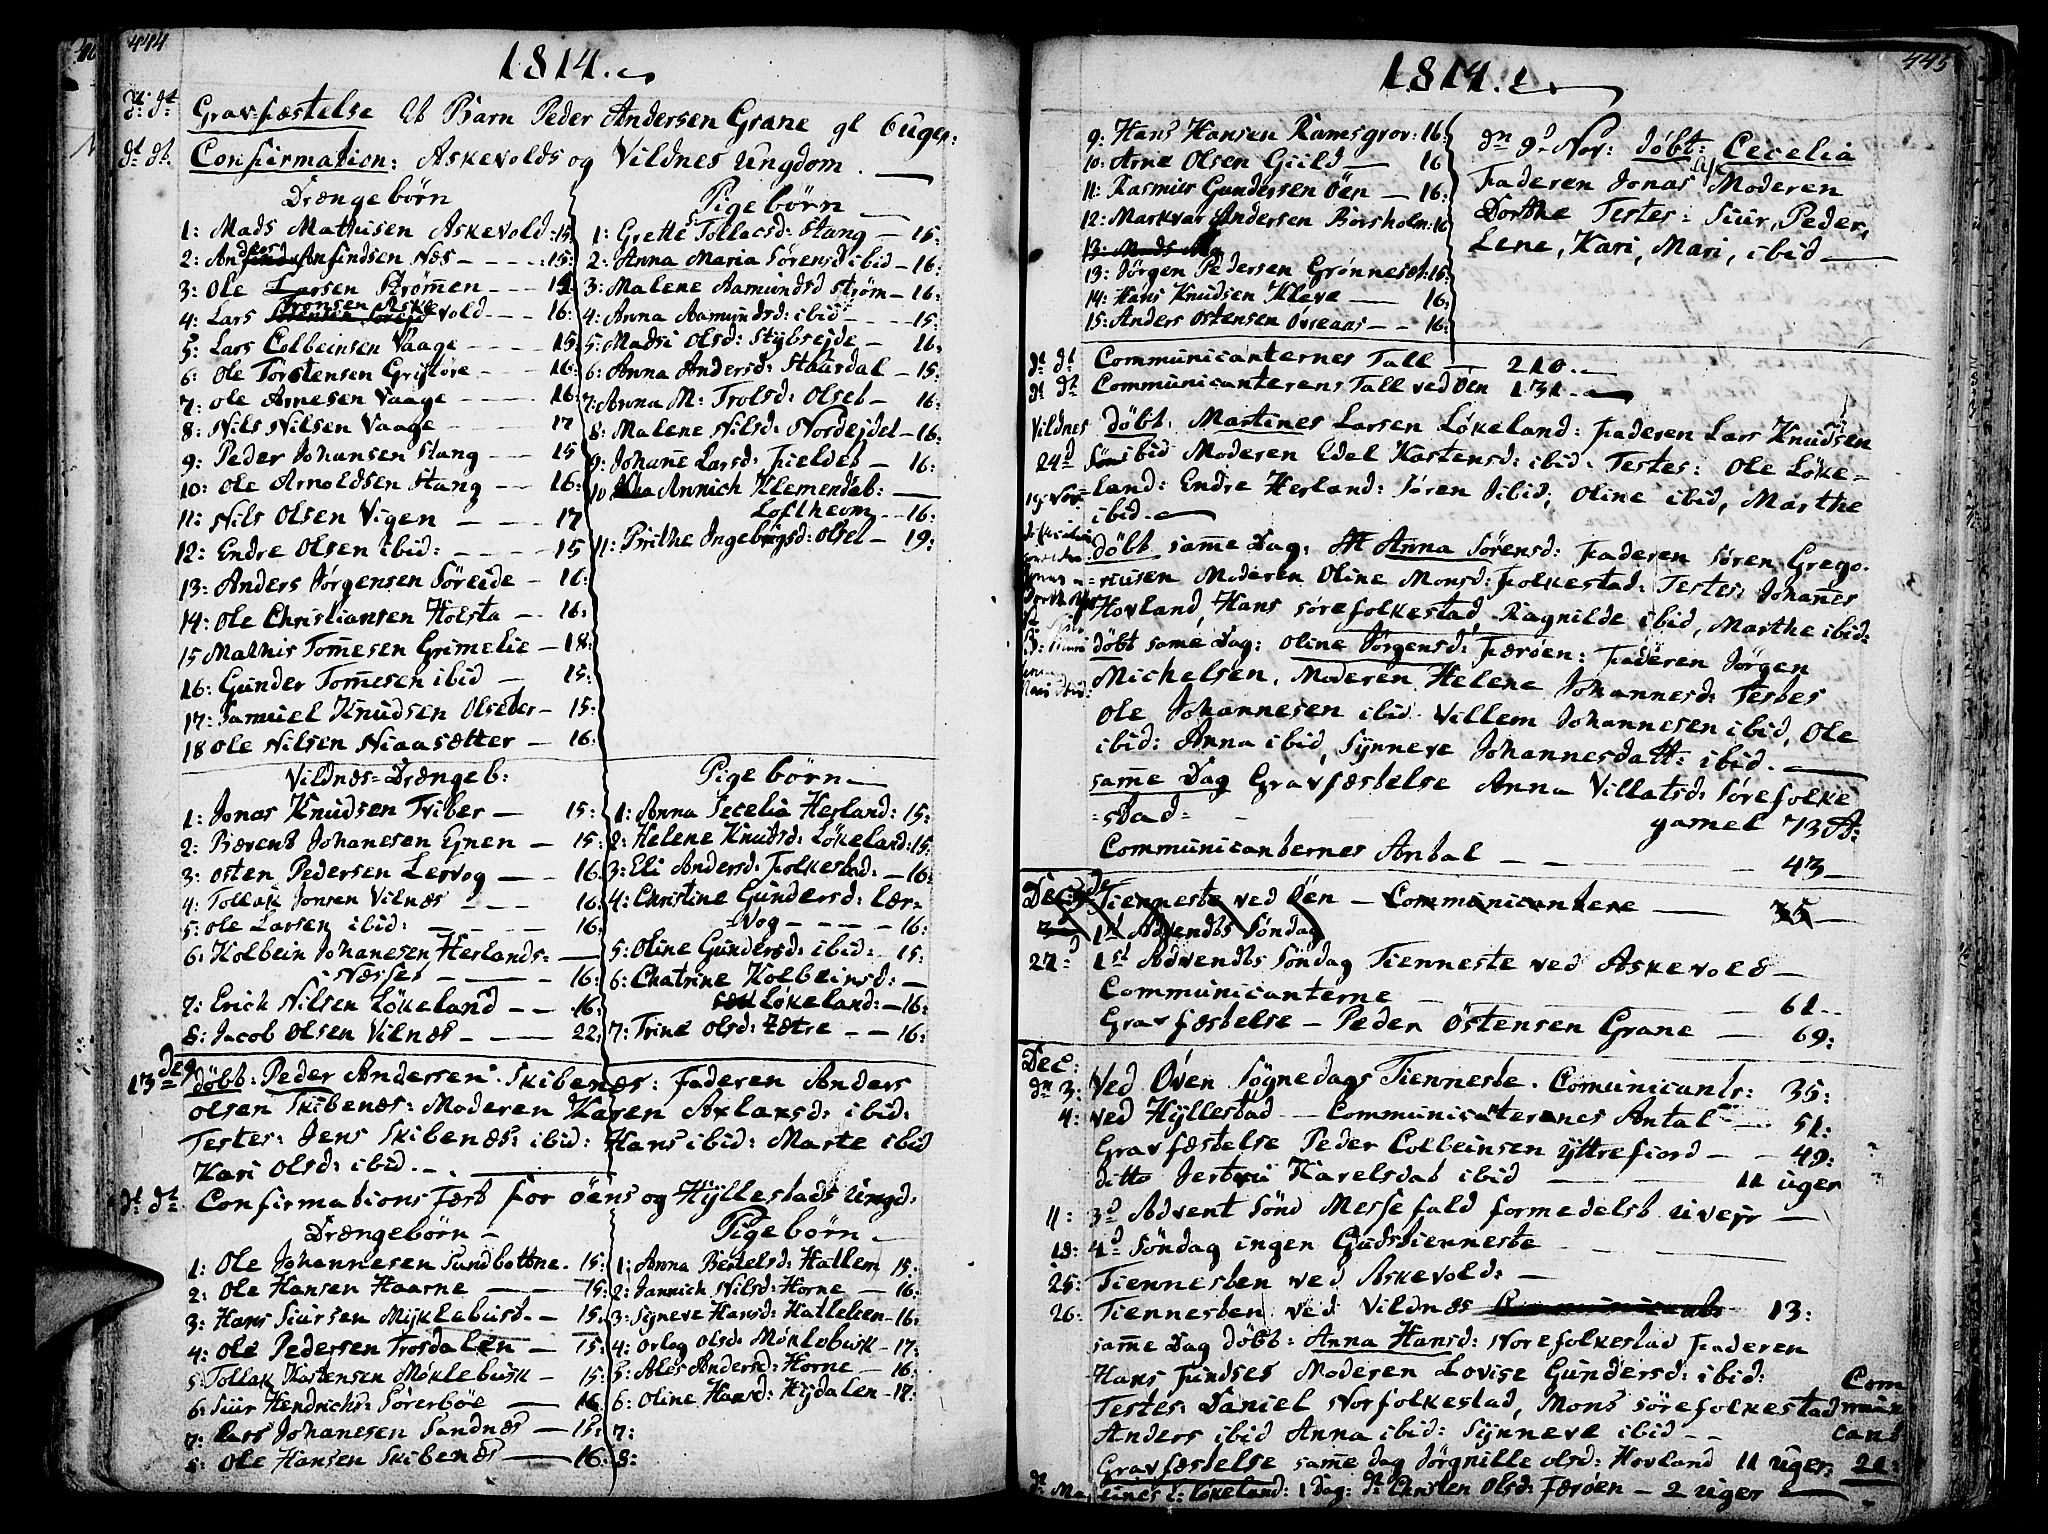 444
1814.
dt: dt: Gravfæstelse Et Barn Peder Andersen Grane gl 6 uger:
dt dt. Confirmation: Askevolds og Vildnes Ungdom.
Drængebørn
1: Mads Mathisen Askevold: 15:
2: Anfindsen Næs - - - : 15:
3: Ole Larsen Strømen - - -
4: Lars Tronsen Askevold - - - 16:
5: Lars Colbeinsen Vaage - - - 15
6: Ole Torstensen Grisløre - - - 16:
7: Ole Arnesen Vaage - - - 16
8: Nils Nilsen Vaage - - - 17
9: Peder Johansen Stang - - 15
10: Ole Arnoldsen Stang - - 16:
11: Nils Olsen Vigen - - - 17
12: Endre Olsen ibid: - - - 15
13: Anders Jørgensen Söreide - 16:
14: Ole Christiansen Holsta - - 16:
15 Mathis Tomesen Grimelie - 18:
16: Gunder Tomesen ibid - 15:
17: Samuel Knudsen Olseter - 15:
18 Ole Nilsen Niaasætter - 16:
Pigebörn
1: Grethe Tollacsd: Stang - 15:
2: Anna Maria Sørensd ibid - 16:
3: Malene Aamundsd Strøm - 16:
4: Anna Aamundsd: ibid - - - 15:
5: Madsi Olsd: Stybsejde - 16:
6: Anna Andersd: Staardal - 15:
7: Anna M: Trolsd: Olset - 16:
8: Malene Nilsd: Nordejdet - 16:
9: Johane Larsd: Fieldet - 16:
10 Annich Klemendsb:
Loftheom - - 16:
11: Brithe Ingebrigsd: Olset - 19:
Vildnæs = Drængeb:
1: Jonas Knudsen Triber - 15:
2: Bærent Johanesen Egnen - 15:
3: Osten Pedersen Lervog - - 16
4: Tollak Jonsen Vilnæs - - - 16:
5: Ole Larsen ibid: - - - 16:
6: Kolbein Johanesen Herlands =
Næsset - - - 16:
7: Erich Nilsen Lökeland - - 16:
8: Jacob Olsen Vilnæs - - - 22:
Pigebörn
1: Anna Secelia Herland: 15:
2: Helene Knudsd: Lökeland: 15:
3: Eli Andersd: Folkestad: - 16:
4: Christine Gundersd: Lær=
Vog - - - 16:
5: Oline Gundersd: ibid: - 15:
6: Chatrine Kolbeinsd: -
Løkeland: - 16:
7: Trine Olsd: Zætre - - 16:
13 de döbt: Peder Andersen Skibenæs: Faderen Anders
Olsen Skibenæs: Moderen Karen Axlaxsd: ibid:
Testes: Jens Skibenæs: ibid: Hans ibid: Marte ibid
Kari Olsd: ibid.
dt: dt. Confirmations Fæst for Öens og Hyllestads Ungd:
Drængebørn -
1: Ole Johannesen Sundbottne. 15:
2: Ole Hansen Haarne - 15:
3: Hans Siursen Myklebust - - 15.
4: Ole Pedersen Trosdalen - 15:
5: Tollak Kastensen Møklebusk - 15:
6: Siur Hendrichs: Sørerböe - 16
7: Lars Johanesen Sandnæs - 15:
8: Ole Hansen Skibenæs - 16:
Pigebörn -
1: Anna Bertelsd: Hatlem 15:
2: Jannich Nilsd: Horne - 16:
3: Syneve Hansd: Hatlelien - 16:
4: Orlog Olsd: Møklebusk - 17:
5: Ales Andersd: Horne - 16.
6: Oline Hansd: Hydalen - 17.
7:
8:
445
1814.
9: Hans Hansen Ramsgrov: 16:
10: Arne Olsen Giild - 16
11: Rasmus Gundersen Öen - 16:
12: Markvar Andersen Borsholm: 16
13: Jörgen Pedersen Grønnes: 15:
14: Hans Knudsen Kleve - 16:
15: Anders Ostensen Øvseaas - - 16:
dn 9d Nov: døbt: Cecelia
Faderen Jonas Moderen
Dorthe Testes: Siur, Peder,
Lene, Kari, Mari, ibid
dt dt Communicanternes Tall - 210.
dt dt Communicanterens Tall ved Öen 131.
Vildnes döbt. Martines Larsen Lökeland: Faderen Lars Knudsen
24d ibid Moderen Edel Kastensd: ibid. Testes: Ole Löke=
land: Endre Herland: Sören ibid; Oline ibid, Marthe
ibid.
döbt same Dag: Anna Sörensd: Faderen Søren Grego=
riusen Moderen Oline Monsd: Folkestad: Testes: Johanes
Hovland, Hans Sørefolkestad, Ragnilde ibid, Marthe ibid:
döbt same Dag: Oline Jörgensd: Færøen: Faderen Jörgen
Michelsen, Moderen Helena Johannesd: Testes
Ole Johannesen ibid. Villem Johannesen ibid, Ole
ibid: Anna ibid, Synneve Johannesdatt: ibid.
same Dag Gravfæstelse Anna Villatsd: Sörefolke
=stad= gamel 73 A:
Communicanternes Antal - - - 43
Dec: Tienneste ved Öen - Communicantere - 35
1st Advendts Söndag
27d 1st Advendts Söndag Tienneste ved Askevold -
Communicanterne - 61 - -
Gravfæstelse - Peder Östensen Grane - 69:
Dec:
dn 3: Ved Öven Søgnedags Tienneste. Comunicants: 35:
4: Ved Hyllestad - Communicanteranes Antal - 51:
Gravfæstelse Peder Colbeinsen Yttrefiord - - 49:
ditto Jertrü Karelsdat ibid - - 11 uger
11: 3d Advent Sönd Messefald formedelst uvejr
18: 4d Söndag ingen Gudstienneste
25: Tiennesten ved Askevold: -
26: Tiennesten ved Vildnæs 13:
same Dag döbt: Anna Hansd: Norefolkestad Faderen
Hans Moderen Lovise Gundersd: ibid:
Testes. Daniel Norfolkestad, Mons sörefolkestad
Anders ibid Anna ibid: Synneve ibid - -
Com
muni
cant
21:
Gravfæstelse same dag Jörgnille Olsd: Hovland 11 uger:
Løkeland: 1 dag: Olsd: Færøen - 2 uger